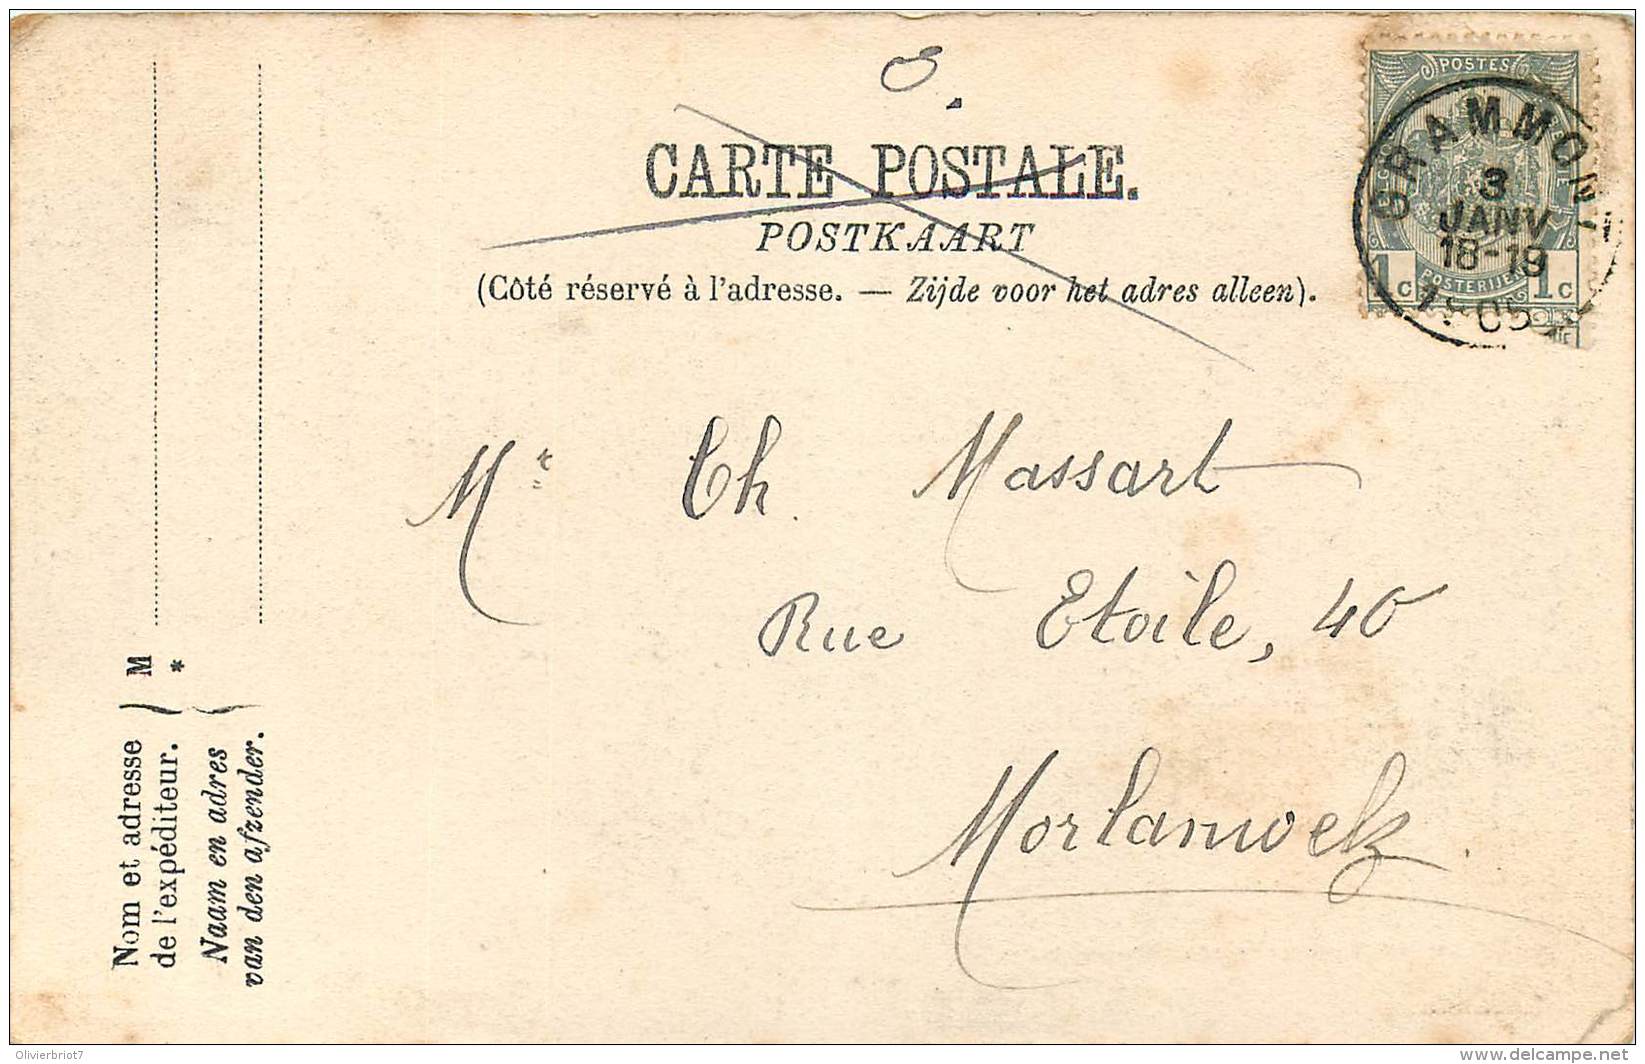 CARTE POSTALE.
POSTKAART
(Côté réservé à l'adresse. — Zijde voor het adres alleen).
POSTES
1c 1c
POSTERIJEN
GRAMMONT
3
JANV
18-19
05
Mr Ch Massart
Rue Etoile, 40
Morlanwelz
Nom et adresse
de l'expéditeur.
M
Naam en adres
van den afzender.
*
Olivierbriot7
www.delcampe.net